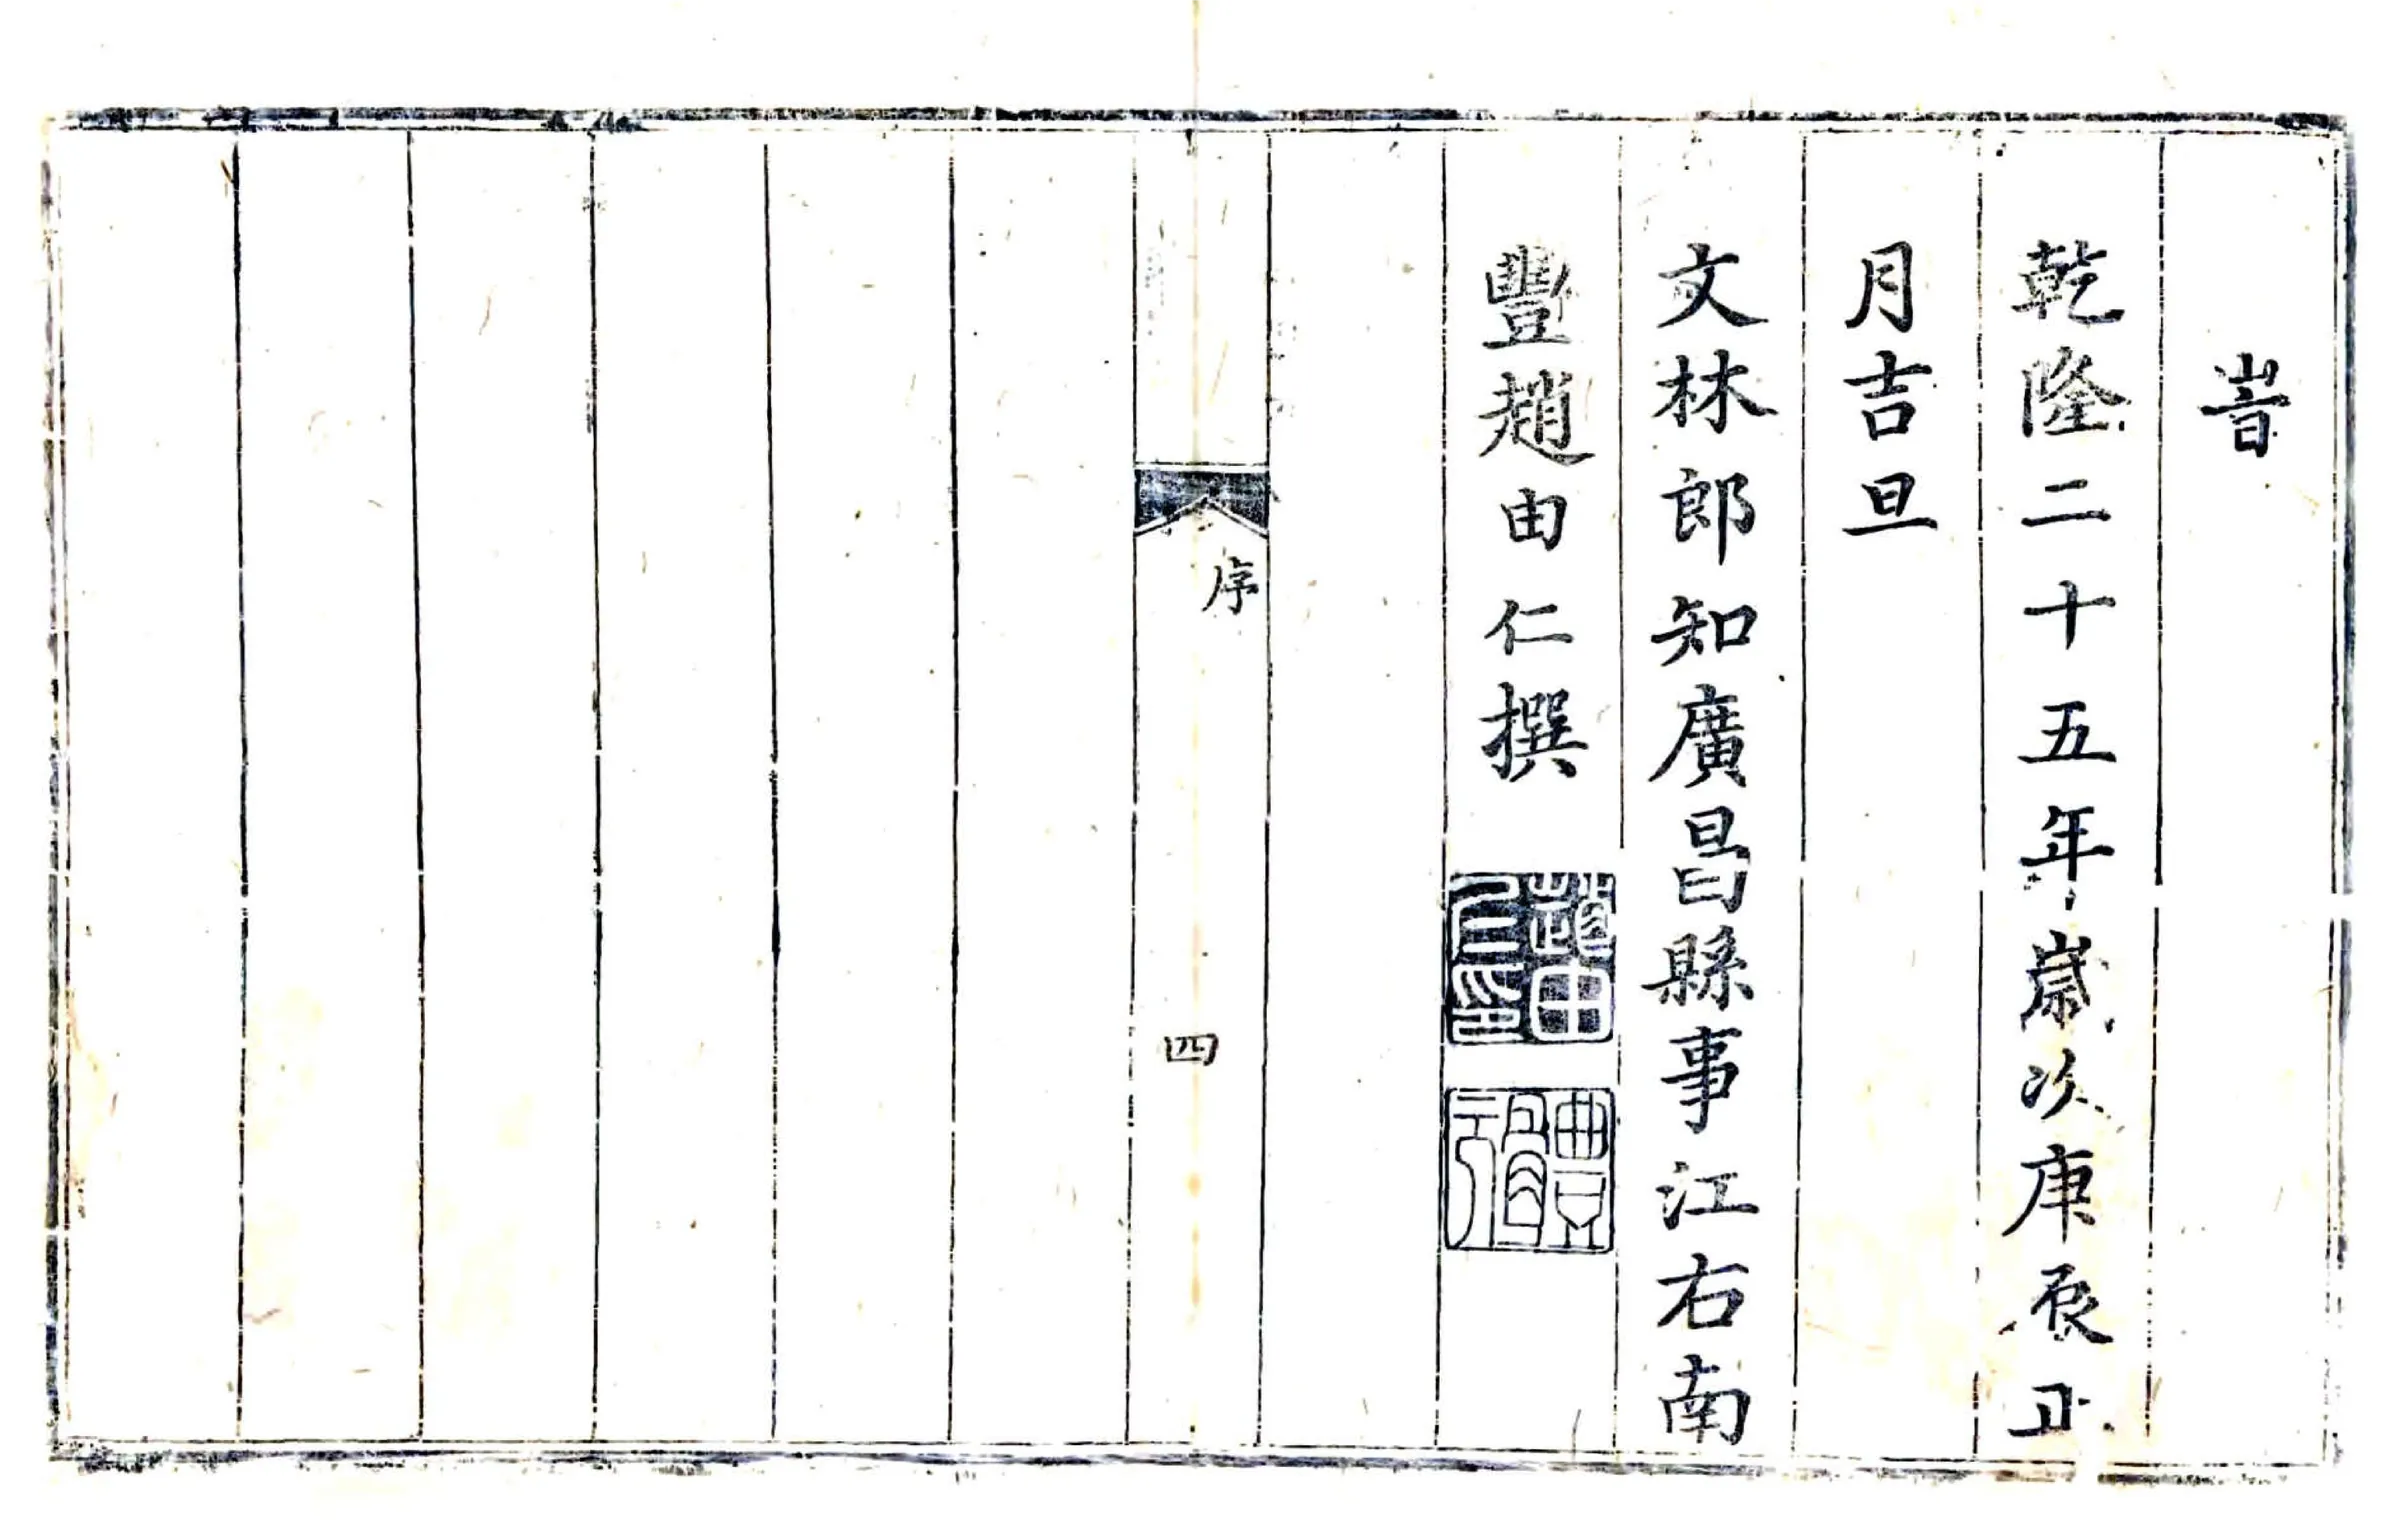 旹
乾隆二十五年歲次庚辰正
月吉旦
文林郎知廣昌縣事江右南
豐趙由仁撰
趙由仁印
體元
序
四